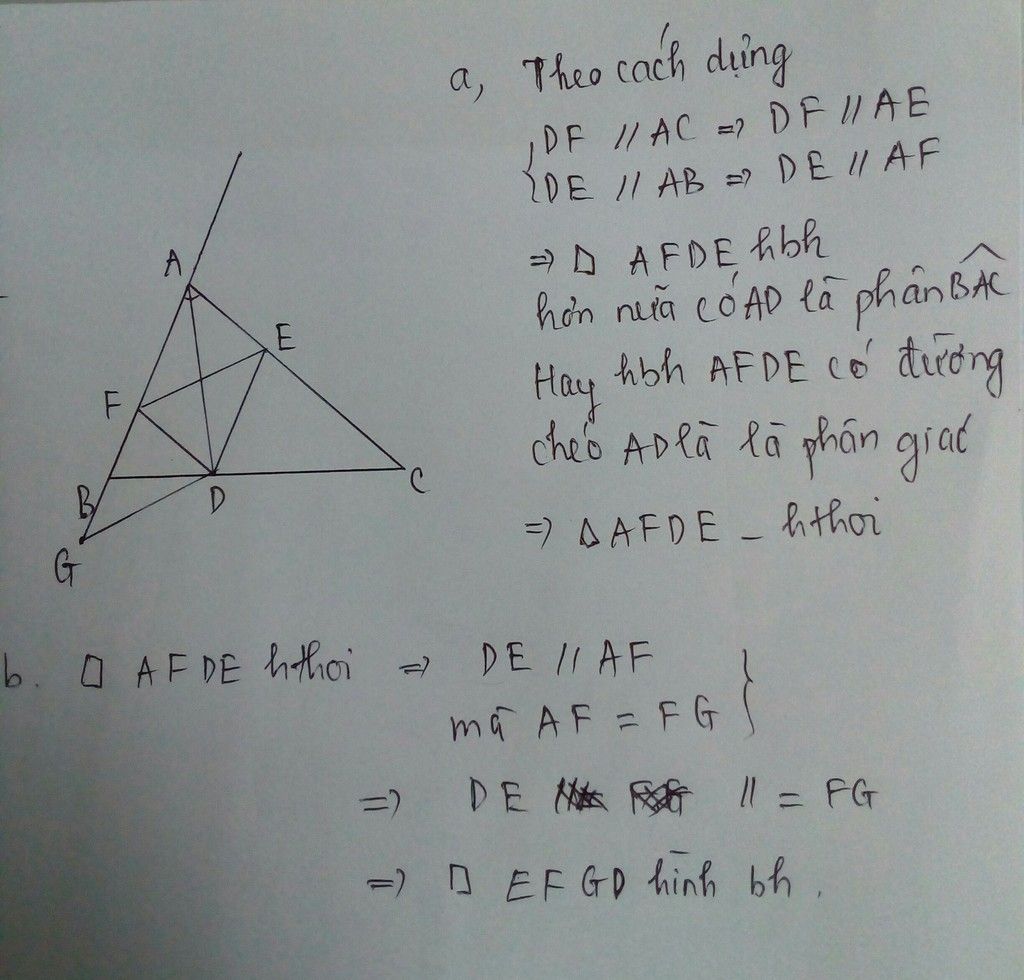 a, Theo cách dựng
DF // AC => DF // AE
DE // AB => DE // AF
=> □ AFDE hbh
hơn nữa có AD là phân BAC
Hay hbh AFDE có đường
chéo AD là là phân giác
=> □ AFDE - hthoi
A
E
F
B
D
C
G
b. □ AFDE hthoi => DE // AF
mà AF = FG
=> DE // = FG
=> □ EFGD hình bh.